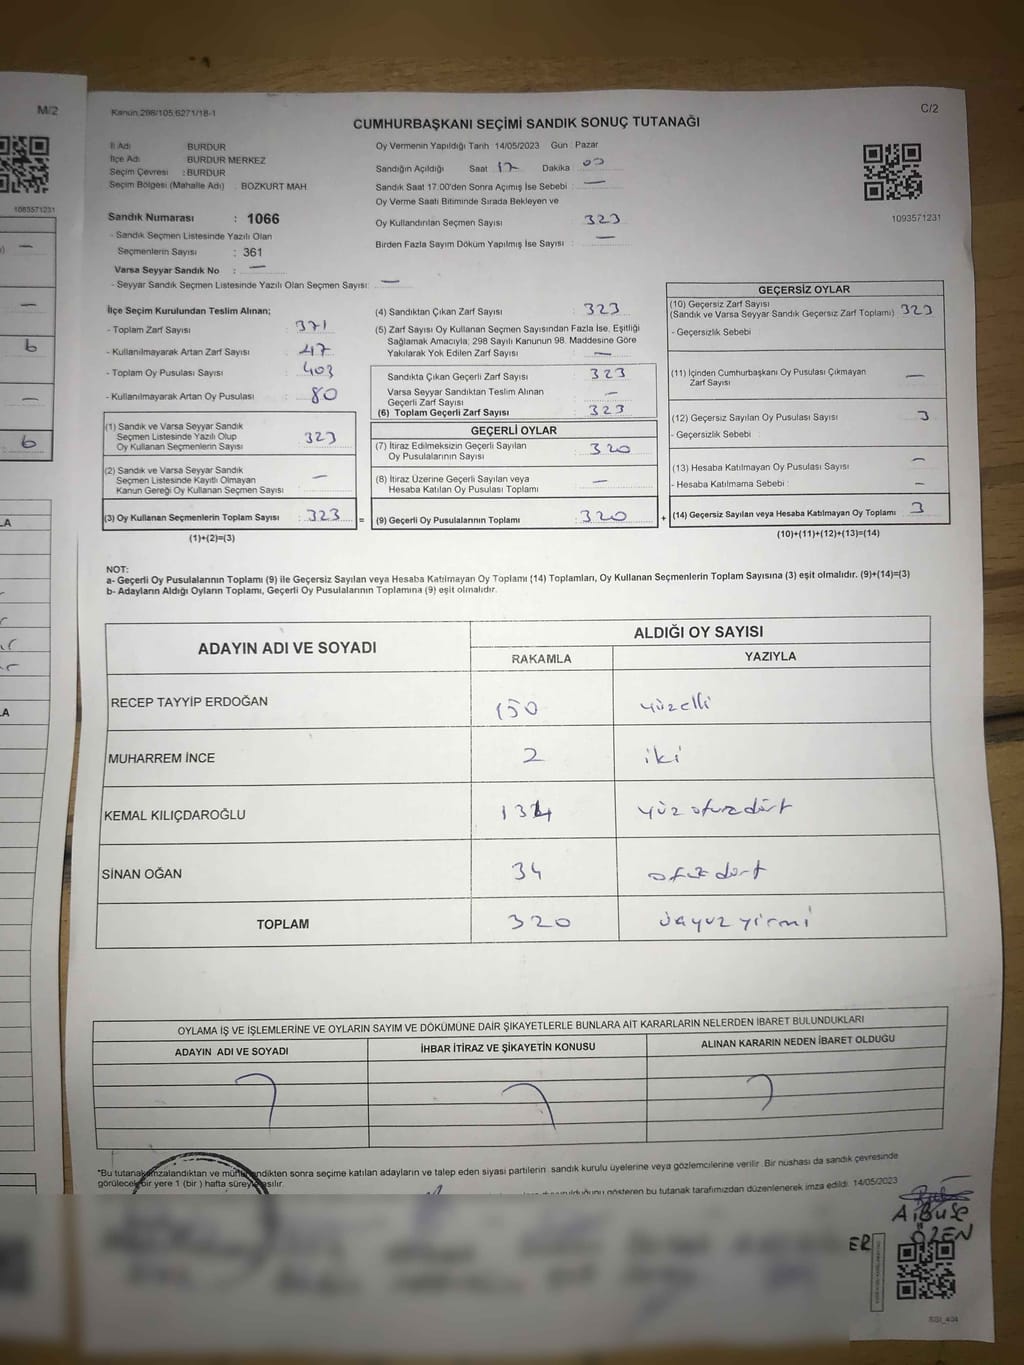 M/2
1093571231
6
6
Kanun:298/105.6271/18-1
C/2
CUMHURBAŞKANI SEÇİMİ SANDIK SONUÇ TUTANAĞI
İl Adı BURDUR
İlçe Adı BURDUR MERKEZ
Seçim Çevresi :BURDUR
Seçim Bölgesi (Mahalle Adı) : BOZKURT MAH
Sandık Numarası : 1066
- Sandık Seçmen Listesinde Yazılı Olan
Seçmenlerin Sayısı : 361
Varsa Seyyar Sandık No : —
- Seyyar Sandık Seçmen Listesinde Yazılı Olan Seçmen Sayısı: —
Oy Vermenin Yapıldığı Tarih 14/05/2023 Gün : Pazar
Sandığın Açıldığı Saat 17 Dakika 00
Sandık Saat 17.00'den Sonra Açımış İse Sebebi : —
Oy Verme Saati Bitiminde Sırada Bekleyen ve
Oy Kullandırılan Seçmen Sayısı 323
Birden Fazla Sayım Döküm Yapılmış İse Sayısı : —
1093571231
İlçe Seçim Kurulundan Teslim Alınan;
- Toplam Zarf Sayısı : 371
- Kullanılmayarak Artan Zarf Sayısı : 47
- Toplam Oy Pusulası Sayısı : 403
- Kullanılmayarak Artan Oy Pusulası : 80
(1) Sandık ve Varsa Seyyar Sandık
Seçmen Listesinde Yazılı Olup
Oy Kullanan Seçmenlerin Sayısı : 323
(2) Sandık ve Varsa Seyyar Sandık
Seçmen Listesinde Kayıtlı Olmayan
Kanun Gereği Oy Kullanan Seçmen Sayısı : —
(3) Oy Kullanan Seçmenlerin Toplam Sayısı : 323
(1)+(2)=(3)
=
(4) Sandıktan Çıkan Zarf Sayısı : 323
(5) Zarf Sayısı Oy Kullanan Seçmen Sayısından Fazla İse, Eşitliği
Sağlamak Amacıyla; 298 Sayılı Kanunun 98. Maddesine Göre
Yakılarak Yok Edilen Zarf Sayısı : —
Sandıkta Çıkan Geçerli Zarf Sayısı : 323
Varsa Seyyar Sandıktan Teslim Alınan
Geçerli Zarf Sayısı : —
(6) Toplam Geçerli Zarf Sayısı : 323
GEÇERLİ OYLAR
(7) İtiraz Edilmeksizin Geçerli Sayılan
Oy Pusulalarının Sayısı : 320
(8) İtiraz Üzerine Geçerli Sayılan veya
Hesaba Katılan Oy Pusulası Toplamı : —
(9) Geçerli Oy Pusulalarının Toplamı : 320
+
GEÇERSİZ OYLAR
(10) Geçersiz Zarf Sayısı
(Sandık ve Varsa Seyyar Sandık Geçersiz Zarf Toplamı) : 323
- Geçersizlik Sebebi :
(11) İçinden Cumhurbaşkanı Oy Pusulası Çıkmayan
Zarf Sayısı : —
(12) Geçersiz Sayılan Oy Pusulası Sayısı : 3
- Geçersizlik Sebebi
(13) Hesaba Katılmayan Oy Pusulası Sayısı —
- Hesaba Katılmama Sebebi : —
(14) Geçersiz Sayılan veya Hesaba Katılmayan Oy Toplamı : 3
(10)+(11)+(12)+(13)=(14)
NOT:
a- Geçerli Oy Pusulalarının Toplamı (9) ile Geçersiz Sayılan veya Hesaba Katılmayan Oy Toplamı (14) Toplamları, Oy Kullanan Seçmenlerin Toplam Sayısına (3) eşit olmalıdır. (9)+(14)=(3)
b- Adayların Aldığı Oyların Toplamı, Geçerli Oy Pusulalarının Toplamına (9) eşit olmalıdır.
ADAYIN ADI VE SOYADI ALDIĞI OY SAYISI
RAKAMLA YAZIYLA
RECEP TAYYİP ERDOĞAN 150 yüzelli
MUHARREM İNCE 2 iki
KEMAL KILIÇDAROĞLU 134 yüz otuzdört
SİNAN OĞAN 34 otuz dört
TOPLAM 320 üçyüz yirmi
OYLAMA İŞ VE İŞLEMLERİNE VE OYLARIN SAYIM VE DÖKÜMÜNE DAİR ŞİKAYETLERLE BUNLARA AİT KARARLARIN NELERDEN İBARET BULUNDUKLARI
ADAYIN ADI VE SOYADI İHBAR İTİRAZ VE ŞİKAYETİN KONUSU ALINAN KARARIN NEDEN İBARET OLDUĞU
"Bu tutanak imzalandıktan ve mühürlendikten sonra seçime katılan adayların ve talep eden siyasi partilerin sandık kurulu üyelerine veya gözlemcilerine verilir. Bir nüshası da sandık çevresinde
görülecek bir yere 1 (bir) hafta süreyle asılır.
gösteren bu tutanak tarafımızdan düzenlenerek imza edildi. 14/05/2023
ÖZEN
ER